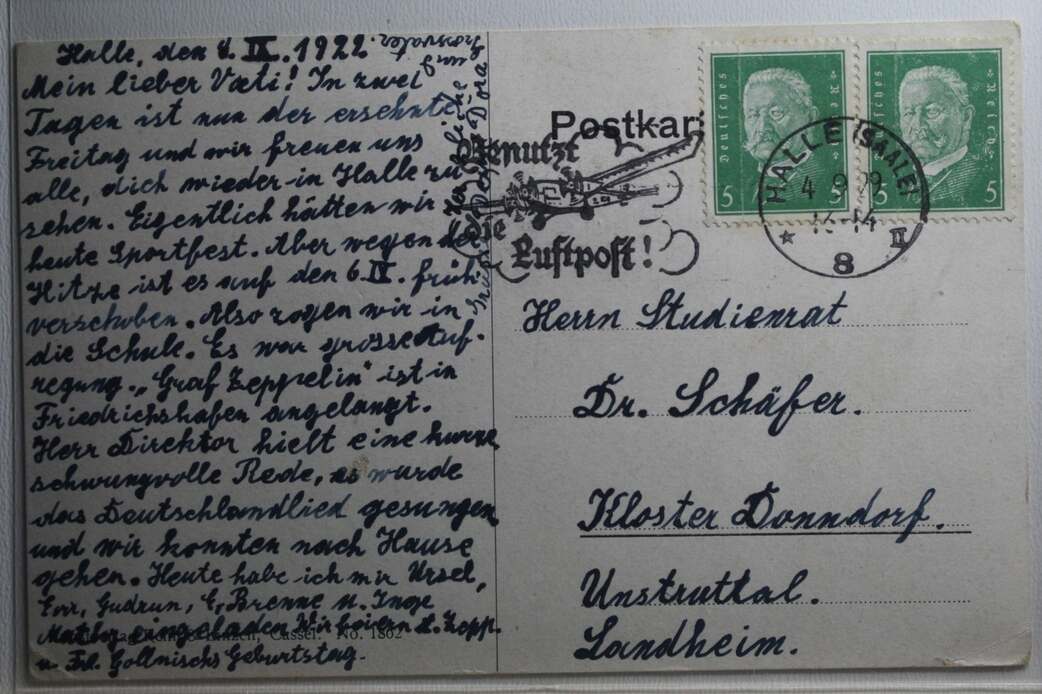 Halle, den 4. IX. 1922.
Mein lieber Vati! In zwei
Tagen ist nun der ersehnte
Freitag und wir freuen uns
alle, dich wieder in Halle zu
sehen. Eigentlich hätten wir
heute Sportfest. Aber wegen der
Hitze ist es auf den 6. IX. früh
verschoben. Also zogen wir in
die Schule. Es war grosse Auf-
regung. „Graf Zeppelin" ist in
Friedrichshafen angelangt.
Herr Direktor hielt eine kurze
schwungvolle Rede, es wurde
das Deutschlandlied gesungen
und wir konnten nach Hause
gehen. Heute habe ich mir Ursel,
Gudrun, Brenne u. Inge
eingeladen Wir feiern d. Zepp.
u. Frl. Gollnischs Geburtstag.
Grossvater
und
Herzliche
Dora
Postkar
Benutzt
die
Luftpost!
Deutsches Reich
5 5
Deutsches Reich
5 5
HALLE (SAALE)
4 9 29
13-14
* II
8
Herrn Studienrat
Dr. Schäfer.
Kloster Donndorf.
Unstruttal.
Landheim.
Cassel. No. 1802